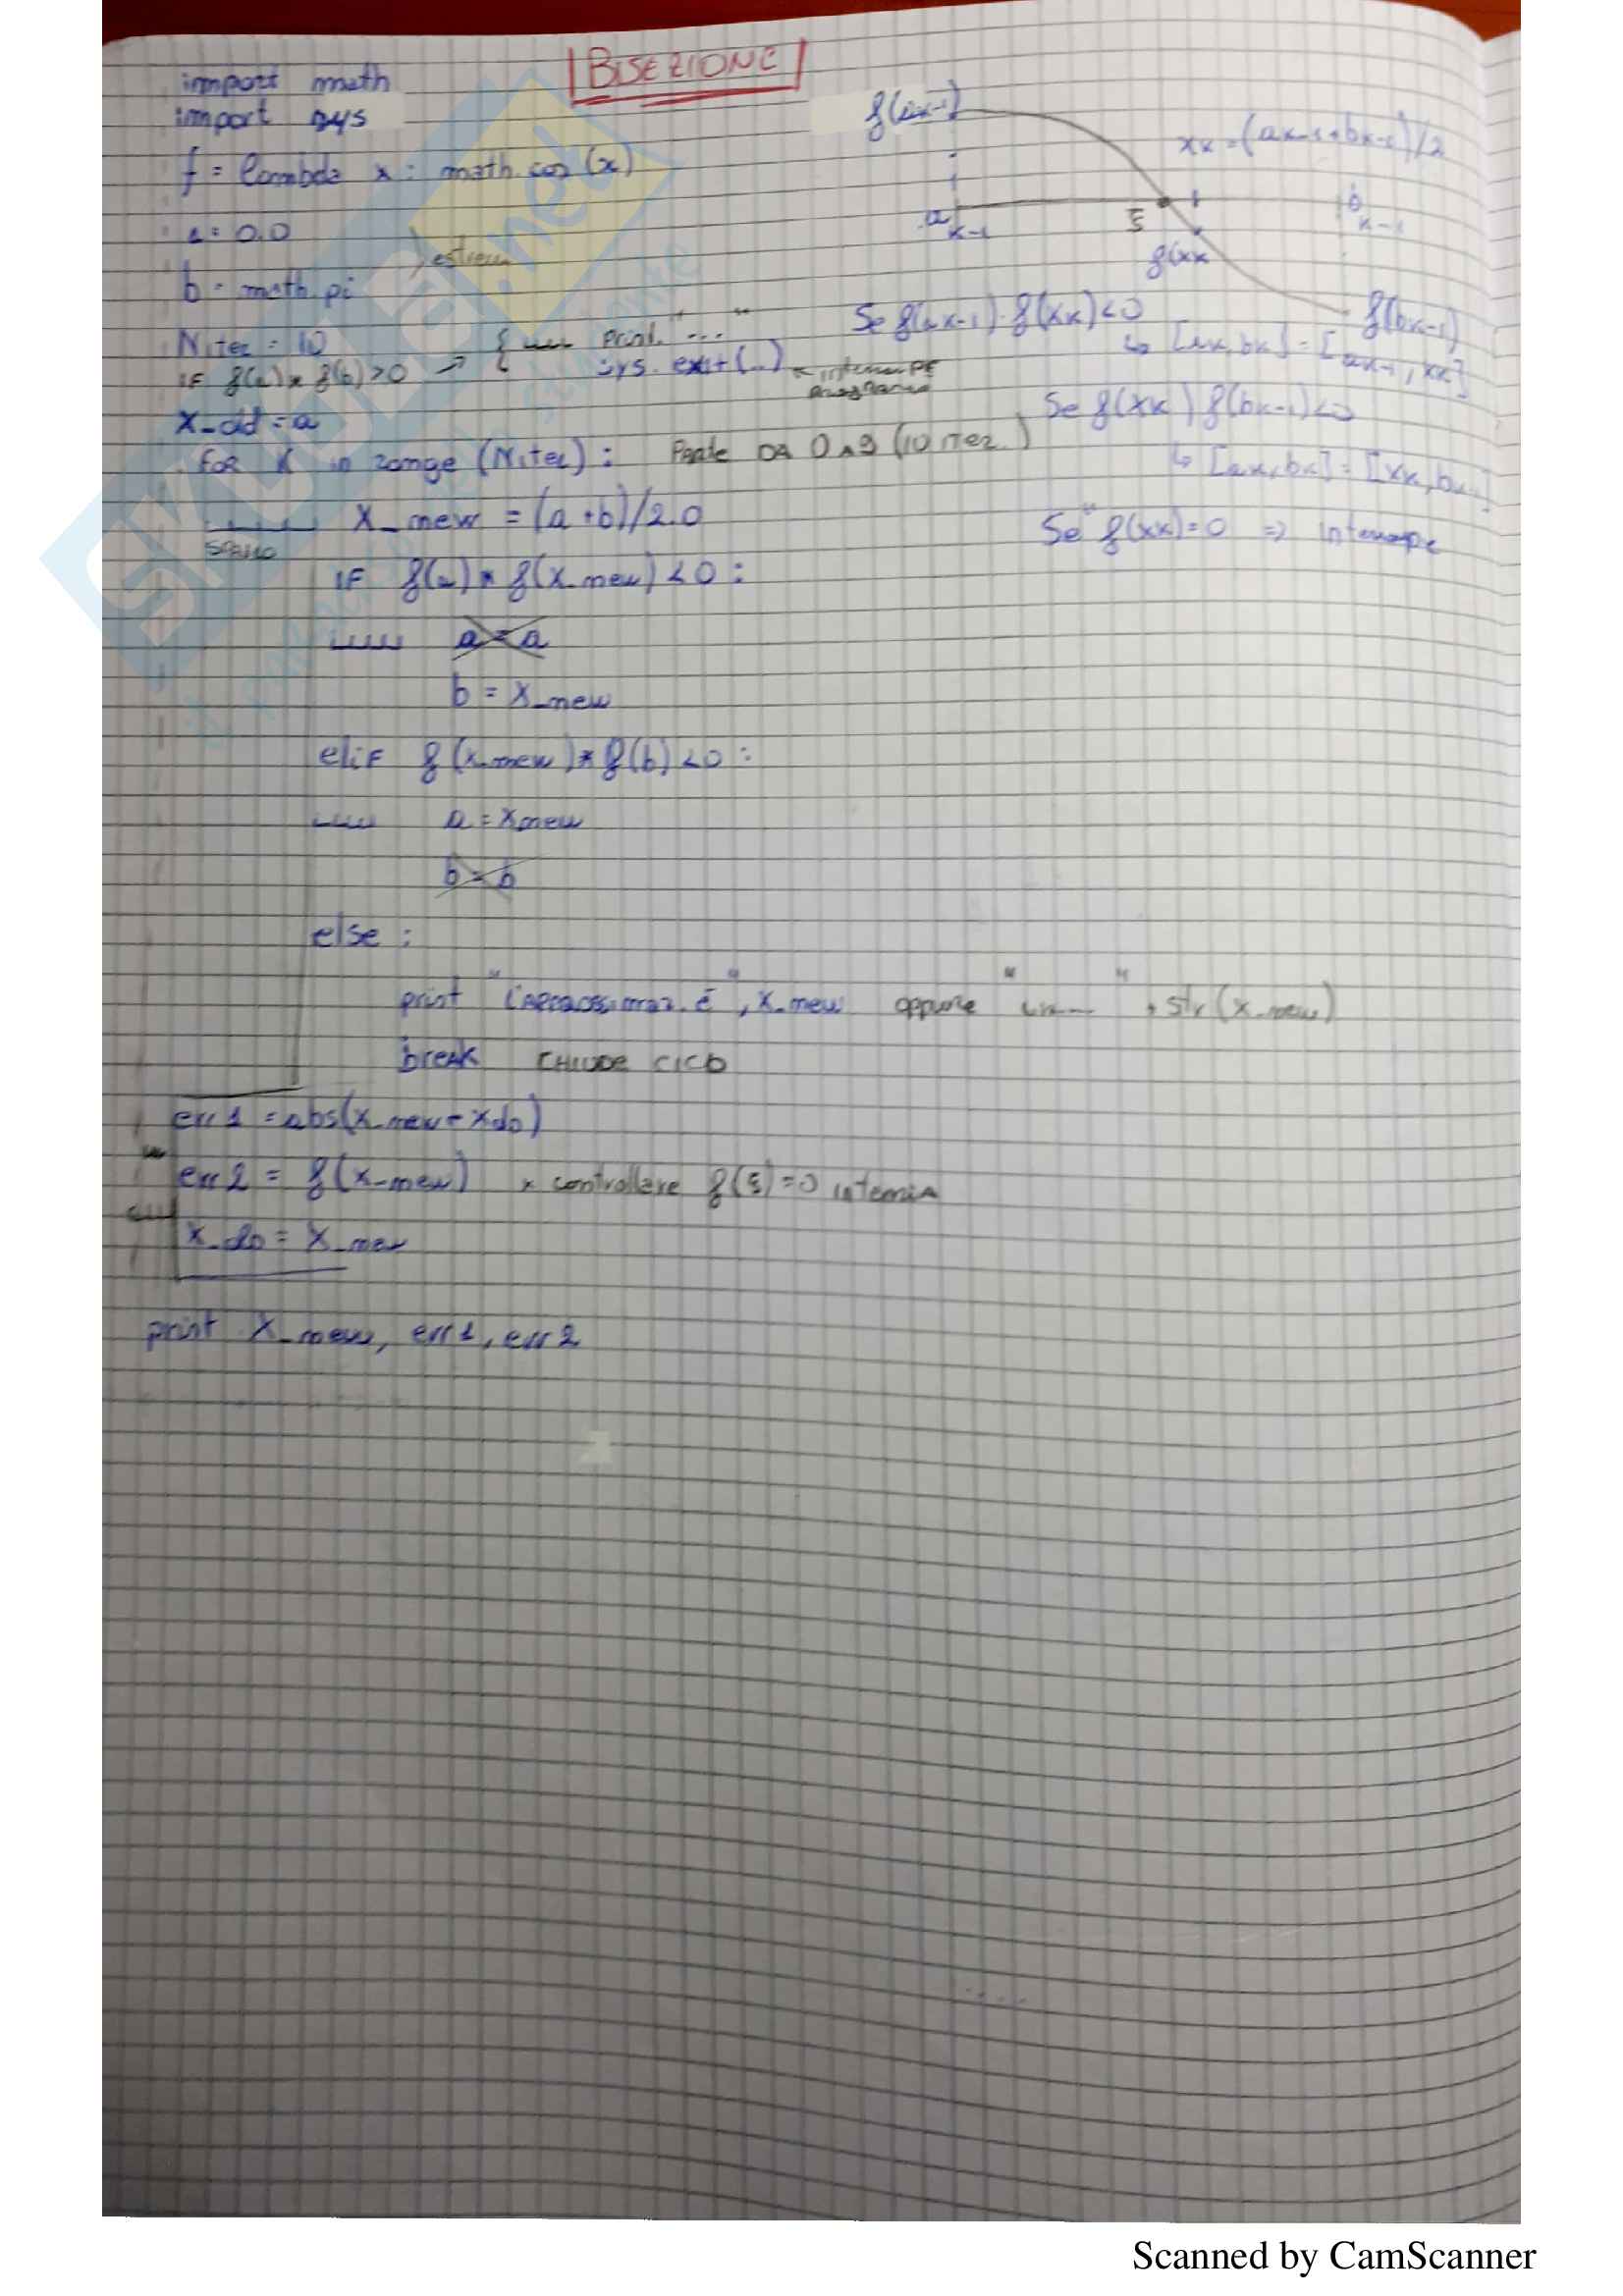 BISEZIONE
import math
import sys
f = lambda x : math.cos(x)
a = 0.0
b = math.pi
} estremi
Niter = 10
IF f(a) * f(b) > 0 → { print "..."
sys.exit(..) ← interrompe programma
x_old = a
FOR K in range (Niter) : Parte DA 0 A 9 (10 iter.)
x_new = (a+b)/2.0
SPAZIO
IF f(a) * f(x_new) < 0 :
a = a
b = x_new
elif f(x_new) * f(b) < 0 :
a = xnew
b = b
else :
print "L'approssimaz. è", x_new oppure " " + str(x_new)
break CHIUDE CICLO
err1 = abs(x_new - xold)
err2 = f(x_new) * controllare f(ξ)=0
x_old = x_new
print x_new, err1, err2
f(ak-1)
xk = (ak-1+bk-1)/2
a k-1
ξ
b k-1
f(xk
f(bk-1)
Se f(ak-1)·f(xk)<0
↳ [ak,bk] = [ak-1,xk]
Se f(xk) f(bk-1)<0
↳ [ak,bk] = [xk,bk-1]
Se f(xk)=0 ⇒ interrompe
SKUOLA.net
Scanned by CamScanner